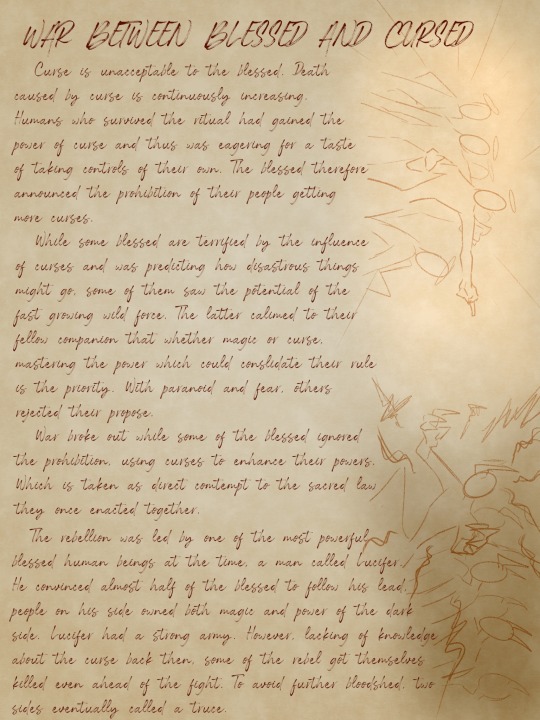 WAR BETWEEN BLESSED AND CURSED
Curse is unacceptable to the blessed. Death
caused by curse is continuously increasing.
Humans who survived the ritual had gained the
power of curse and thus was eagering for a taste
of taking controls of their own. The blessed therefore
announced the prohibition of their people getting
more curses.
While some blessed are terrified by the influence
of curses and was predicting how disastrous things
might go, some of them saw the potential of the
fast growing wild force. The latter calimed to their
fellow companion that whether magic or curse,
mastering the power which could conslidate their rule
is the priority. With paranoid and fear, others
rejected their propose.
War broke out while some of the blessed ignored
the prohibition, using curses to enhance their powers.
Which is taken as direct comtempt to the sacred law
they once enacted together.
The rebellion was led by one of the most powerful
blessed human beings at the time, a man called Lucifer.
He convinced almost half of the blessed to follow his lead,
people on his side owned both magic and power of the dark
side. Lucifer had a strong army. However, lacking of knowledge
about the curse back then, some of the rebel got themselves
killed even ahead of the fight. To avoid further bloodshed, two
sides eventually called a truce.